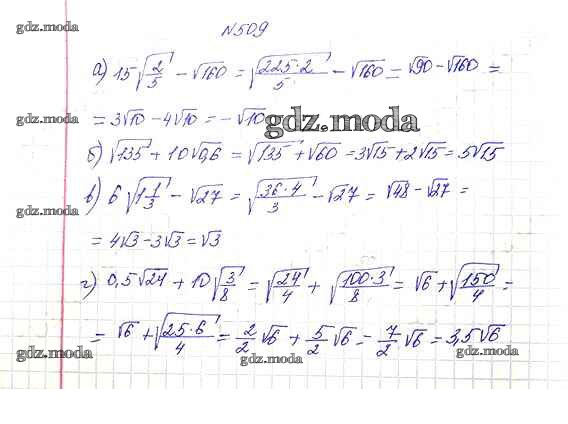 gdz.moda
N509
а) 15√(2/5) - √160 = √(225·2/5) - √160 = √90 - √160 =
gdz.moda
gdz.moda
= 3√10 - 4√10 = -√10
gdz.moda
б) √135 + 10√0,6 = √135 + √60 = 3√15 + 2√15 = 5√15
в) 6√(1 1/3) - √27 = √(36·4/3) - √27 = √48 - √27 =
gdz.moda
= 4√3 - 3√3 = √3
gdz.moda
г) 0,5√24 + 10√(3/8) = √(24/4) + √(100·3/8) = √6 + √(150/4) =
gdz.moda
= √6 + √(25·6/4) = 2/2√6 + 5/2√6 = 7/2√6 = 3,5√6
gdz.moda
gdz.moda
gdz.moda